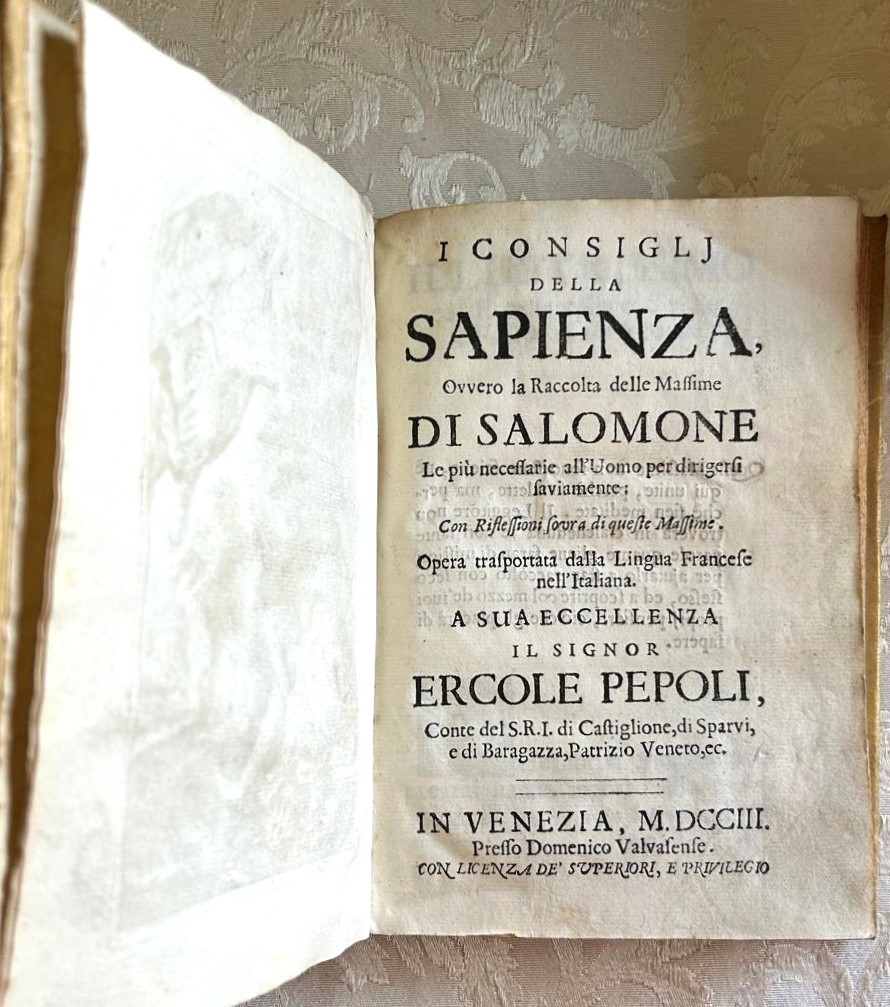 I CONSIGLJ
DELLA
SAPIENZA,
Ovvero la Raccolta delle Maſſime
DI SALOMONE
Le più neceſſarie all'Uomo per dirigerſi
ſaviamente;
Con Rifleſſioni ſovra di queſte Maſſime.
Opera traſportata dalla Lingua Franceſe
nell'Italiana.
A SUA ECCELLENZA
IL SIGNOR
ERCOLE PEPOLI,
Conte del S.R.I. di Caſtiglione, di Sparvi,
e di Baragazza, Patrizio Veneto, ec.
IN VENEZIA, M.DCCIII.
Preſſo Domenico Valvaſenſe.
CON LICENZA DE' SUPERIORI, E PRIVILEGIO